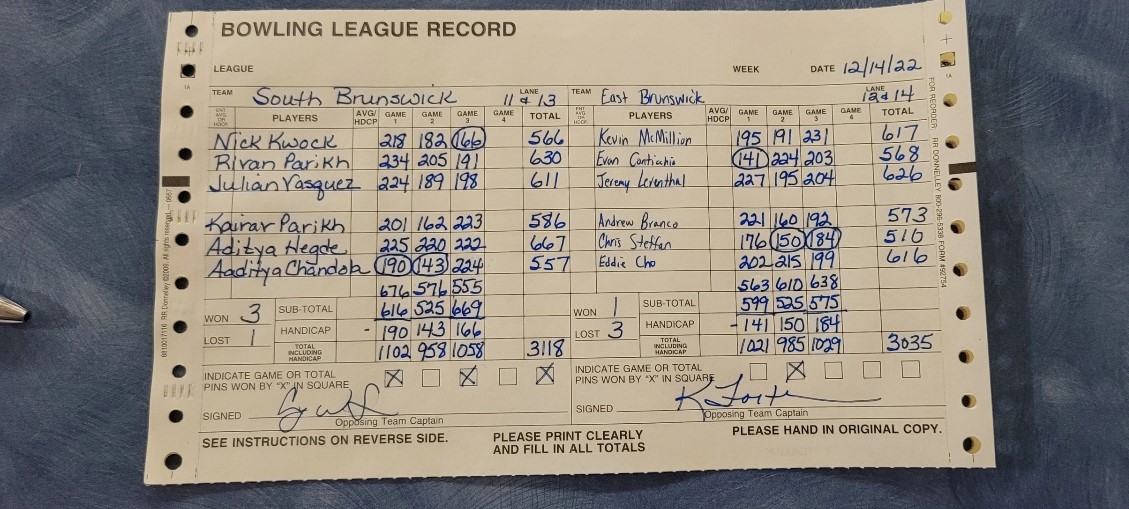 BOWLING LEAGUE RECORD
LEAGUE WEEK DATE 12/14/22
TEAM South Brunswick LANE 11 & 13 TEAM East Brunswick LANE 12 & 14
PLAYERS AVG/HDCP GAME 1 GAME 2 GAME 3 GAME 4 TOTAL PLAYERS AVG/HDCP GAME 1 GAME 2 GAME 3 GAME 4 TOTAL
Nick Kwock 218 182 166 566 Kevin McMillion 195 191 231 617
Rivan Parikh 234 205 191 630 Evan 141 224 203 568
Julian Vasquez 224 189 198 611 Jeremy Leventhal 227 195 204 626
Kairav Parikh 201 162 223 586 Andrew Branco 221 160 192 573
Aditya Hegde 225 220 222 667 Chris Steffan 176 150 184 510
Aaditya Chandok 190 143 224 557 Eddie Cho 202 215 199 616
676 576 555 563 610 638
WON 3 SUB-TOTAL 616 525 669 WON 1 SUB-TOTAL 599 525 575
LOST 1 HANDICAP - 190 143 166 LOST 3 HANDICAP - 141 150 184
TOTAL INCLUDING HANDICAP 1102 958 1058 3118 TOTAL INCLUDING HANDICAP 1021 985 1029 3035
INDICATE GAME OR TOTAL PINS WON BY "X" IN SQUARE X X X INDICATE GAME OR TOTAL PINS WON BY "X" IN SQUARE X
SIGNED SIGNED
Opposing Team Captain Opposing Team Captain
SEE INSTRUCTIONS ON REVERSE SIDE. PLEASE PRINT CLEARLY AND FILL IN ALL TOTALS PLEASE HAND IN ORIGINAL COPY.
FOR REORDER RR DONNELLEY 800-296-5338 FORM #92754